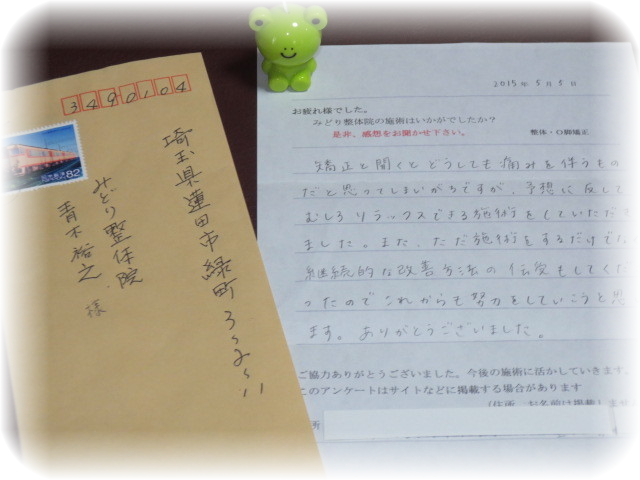 3490104
82
埼玉県蓮田市緑町3〜2〜11
みどり整体院
青木裕之 様
2015年5月5日
お疲れ様でした。
みどり整体院の施術はいかがでしたか？
是非、感想をお聞かせ下さい。
整体・O脚矯正
矯正と聞くとどうしても痛みを伴うもの
だと思ってしまいがちですが、予想に反して
むしろリラックスできる施術をしていただき
ました。また、ただ施術をするだけでなく
継続的な改善方法の伝授もしてくだ
さったのでこれからも努力をしていこうと思い
ます。ありがとうございました。
ご協力ありがとうございました。今後の施術に活かしていきます。
このアンケートはサイトなどに掲載する場合があります
(住所、お名前は掲載しませ
所